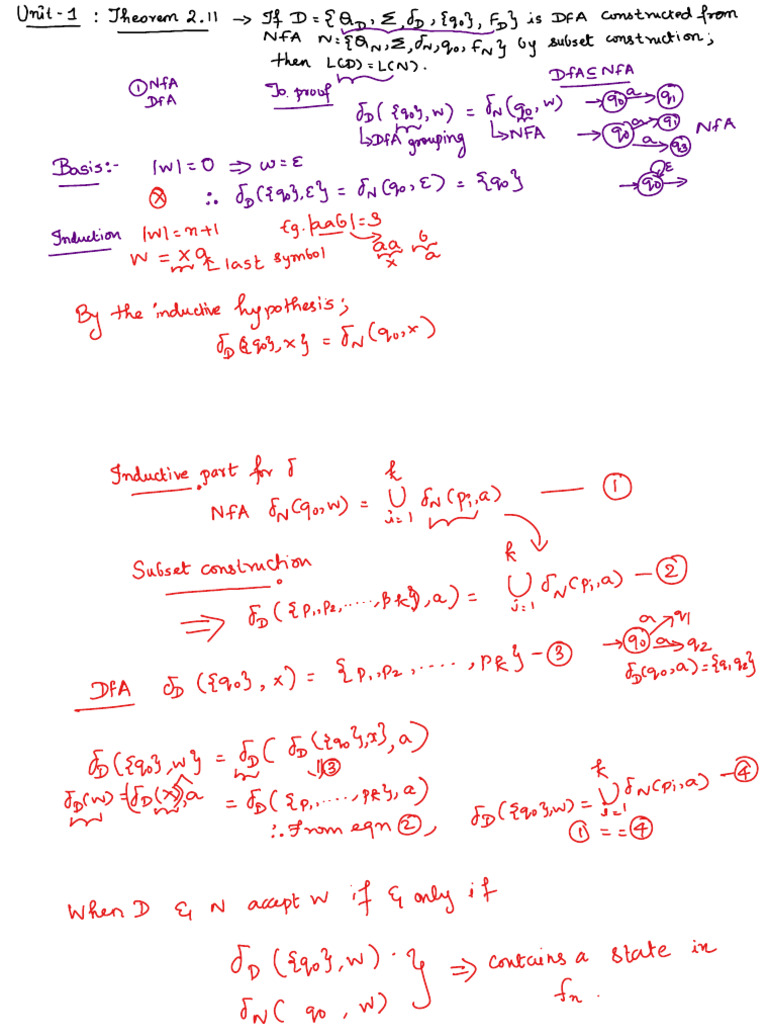 Unit-1 : Theorem 2.11 → If D = {Q_D, Σ, δ_D, {q₀}, F_D} is DFA constructed from
NFA N = {Q_N, Σ, δ_N, q₀, F_N} by subset construction;
then L(D) = L(N).
DFA ⊆ NFA
① NFA
DFA
To proof
δ_D({q₀}, w) = δ_N(q₀, w)
↳DFA grouping ↳NFA
→ q₀ a→ q₁
→ q₀ a→ q₁
a→ q₃
NFA
Basis:- |w| = 0 ⇒ w = ε
ⓧ ∴ δ_D({q₀}, ε} = δ_N(q₀, ε) = {q₀}
→ q₀ → ε
Induction |w| = n+1 eg. |aab| = 3
w = xa
last symbol
aa b
x a
By the inductive hypothesis;
δ_D{q₀}, x} = δ_N(q₀, x)
Inductive part for δ
NFA δ_N(q₀, w) = k ∪ i=1 δ_N(pᵢ, a) — ①
Subset construction
⇒ δ_D({p₁, p₂, ....., pk}, a) = k ∪ i=1 δ_N(pᵢ, a) — ②
DFA δ_D({q₀}, x) = {p₁, p₂, ....., pk} — ③
→ q₀ a q₁
a q₂
δ_D(q₀, a) = {q₁ q₂}
δ_D({q₀}, w} = δ_D( δ_D({q₀}, x}, a)
③
δ_D(w) = (δ_D(x)), a = δ_D({p₁, ....., pk}, a)
∴ From eqn ②, δ_D({q₀}, w) = k ∪ i=1 δ_N(pᵢ, a) — ④
① == ④
When D & N accept w if & only if
δ_D({q₀}, w) .
δ_N( q₀ , w)
} ⇒ contains a state in
Fn.